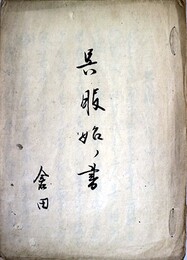 呉服始ノ書
倉田